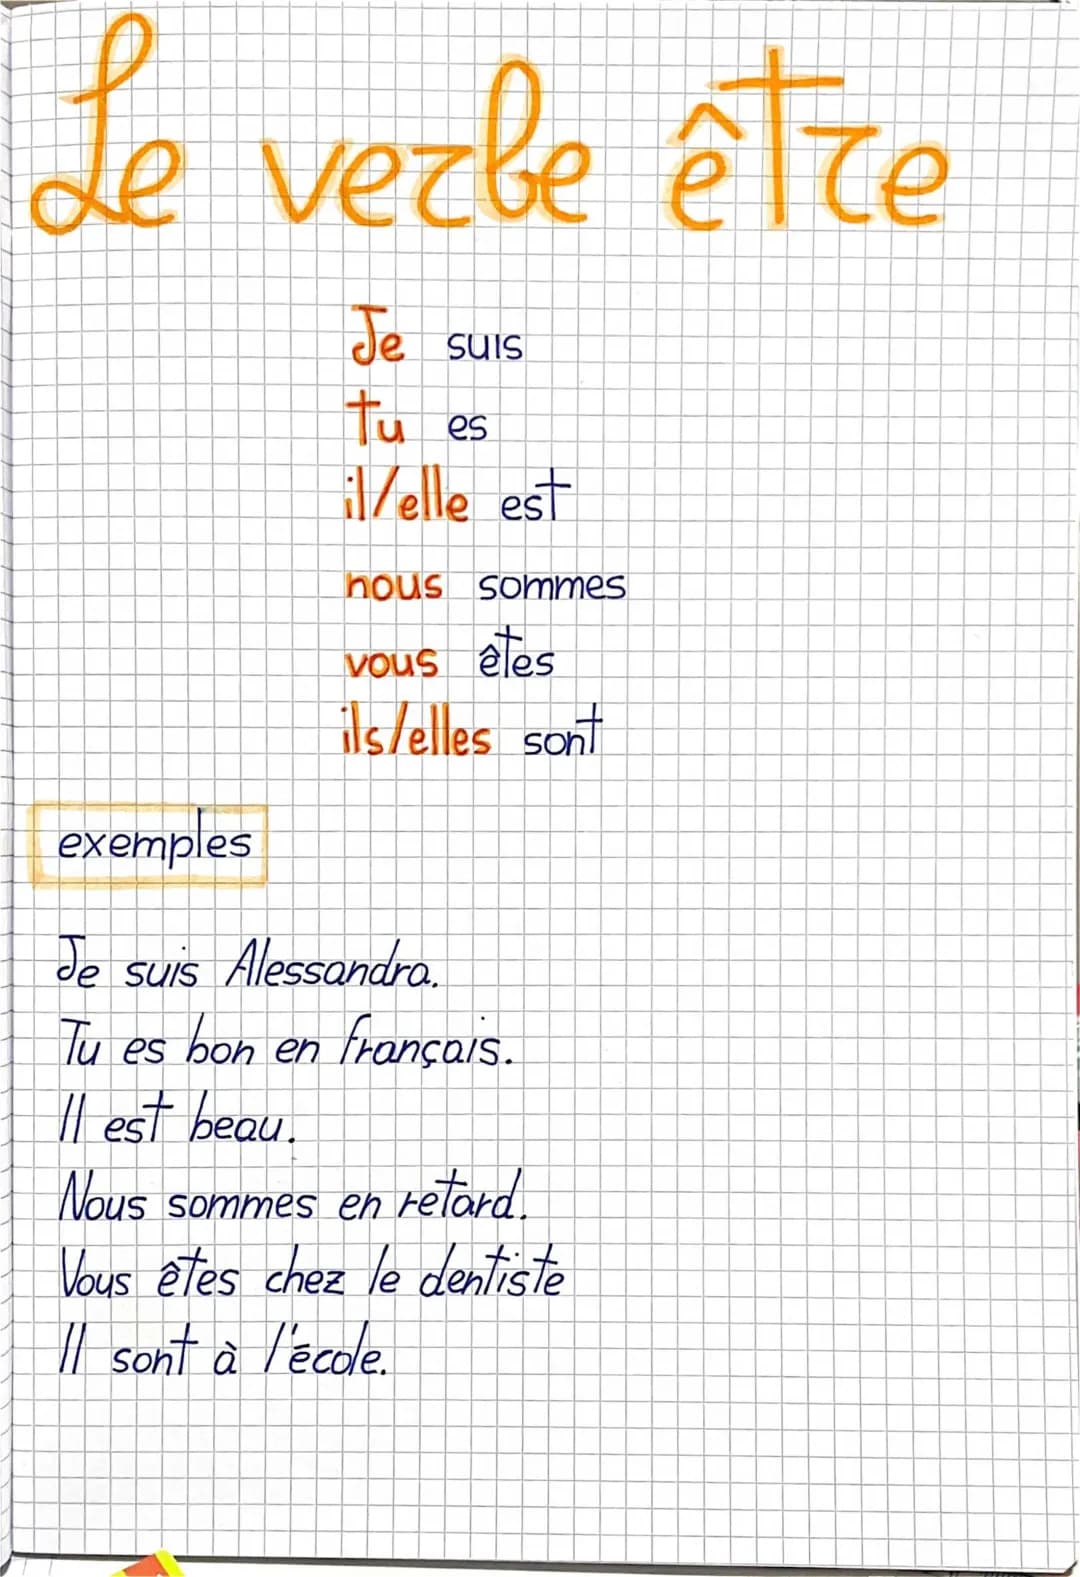 Le verbe être
Je suis
tu es
il/elle est
nous sommes
vous êtes
ils/elles sont
exemples
Je suis Alessandra.
Tu es bon en français.
Il est beau.
Nous sommes en retard.
Vous êtes chez le dentiste
Il sont à l'école.